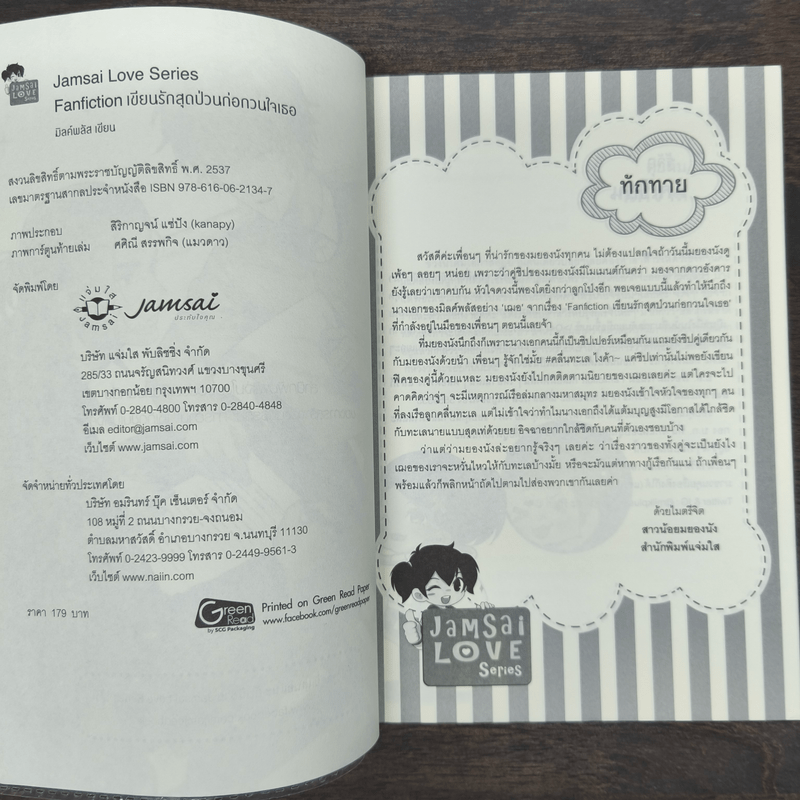 Jamsai Love Series
Fanfiction เขียนรักสุดป่วนก่อกวนใจเธอ
มิลค์พลัส เขียน
สงวนลิขสิทธิ์ตามพระราชบัญญัติลิขสิทธิ์ พ.ศ. 2537
เลขมาตรฐานสากลประจำหนังสือ ISBN 978-616-06-2134-7
ภาพประกอบ สิริกาญจน์ แซ่ปัง (kanapy)
ภาพการ์ตูนท้ายเล่ม ศศิณี สรรพกิจ (แมวดาว)
จัดพิมพ์โดย
แจ่มใส
Jamsai
Jamsai
ประทับใจคุณ
บริษัท แจ่มใส พับลิชชิ่ง จำกัด
285/33 ถนนจรัญสนิทวงศ์ แขวงบางขุนศรี
เขตบางกอกน้อย กรุงเทพฯ 10700
โทรศัพท์ 0-2840-4800 โทรสาร 0-2840-4848
อีเมล editor@jamsai.com
เว็บไซต์ www.jamsai.com
จัดจำหน่ายทั่วประเทศโดย
บริษัท อมรินทร์ บุ๊ค เซ็นเตอร์ จำกัด
108 หมู่ที่ 2 ถนนบางกรวย-จงถนอม
ตำบลมหาสวัสดิ์ อำเภอบางกรวย จ.นนทบุรี 11130
โทรศัพท์ 0-2423-9999 โทรสาร 0-2449-9561-3
เว็บไซต์ www.naiin.com
ราคา 179 บาท
Green Read
by SCG Packaging
Printed on Green Read Paper
www.facebook.com/greenreadpaper
ทักทาย
สวัสดีค่ะเพื่อนๆ ที่น่ารักของมยองนังทุกคน ไม่ต้องแปลกใจถ้าวันนี้มยองนังดู
เพ้อๆ ลอยๆ หน่อย เพราะว่าคู่ชิปของมยองนังมีโมเมนต์กันคร่า มองจากดาวอังคาร
ยังรู้เลยว่าเขาคบกัน หัวใจดวงนี้พองโตยิ่งกว่าลูกโป่งอีก พอเจอแบบนี้แล้วทำให้นึกถึง
นางเอกของมิลค์พลัสอย่าง 'เฌอ' จากเรื่อง 'Fanfiction เขียนรักสุดป่วนก่อกวนใจเธอ'
ที่กำลังอยู่ในมือของเพื่อนๆ ตอนนี้เลยจ้า
ที่มยองนังนึกถึงก็เพราะว่านางเอกคนนี้ก็เป็นชิปเปอร์เหมือนกัน แถมยังชิปคู่เดียวกัน
กับมยองนังด้วยน้า เพื่อนๆ รู้จักใช่มั้ย #คลื่นทะเล ไงค้า~ แค่ชิปเท่านั้นไม่พอยังเขียน
ฟิคของคู่นี้ด้วยแหละ มยองนังยังไปกดติดตามนิยายของเฌอเลยค่ะ แต่ใครจะไป
คาดคิดว่าจู่ๆ จะมีเหตุการณ์เรือล่มกลางมหาสมุทร มยองนังเข้าใจหัวใจของทุกๆ คน
ที่ลงเรือลูกคลื่นทะเล แต่ไม่เข้าใจว่าทำไมนางเอกถึงได้แต้มบุญสูงมีโอกาสได้ใกล้ชิด
กับทะเลนายแบบสุดเท่ด้วยยย อิจฉาอยากใกล้ชิดกับคนที่ตัวเองชอบบ้าง
ว่าแต่ว่ามยองนังล่ะอยากรู้จริงๆ เลยค่ะ ว่าเรื่องราวของทั้งคู่จะเป็นยังไง
เฌอของเราจะหวั่นไหวให้กับทะเลบ้างมั้ย หรือจะมัวแต่หาทางกู้เรือกันแน่ ถ้าเพื่อนๆ
พร้อมแล้วก็พลิกหน้าถัดไปตามไปส่องพวกเขากันเลยค่า
ด้วยไมตรีจิต
สาวน้อยมยองนัง
สำนักพิมพ์แจ่มใส
Jamsai
LOVE
Series